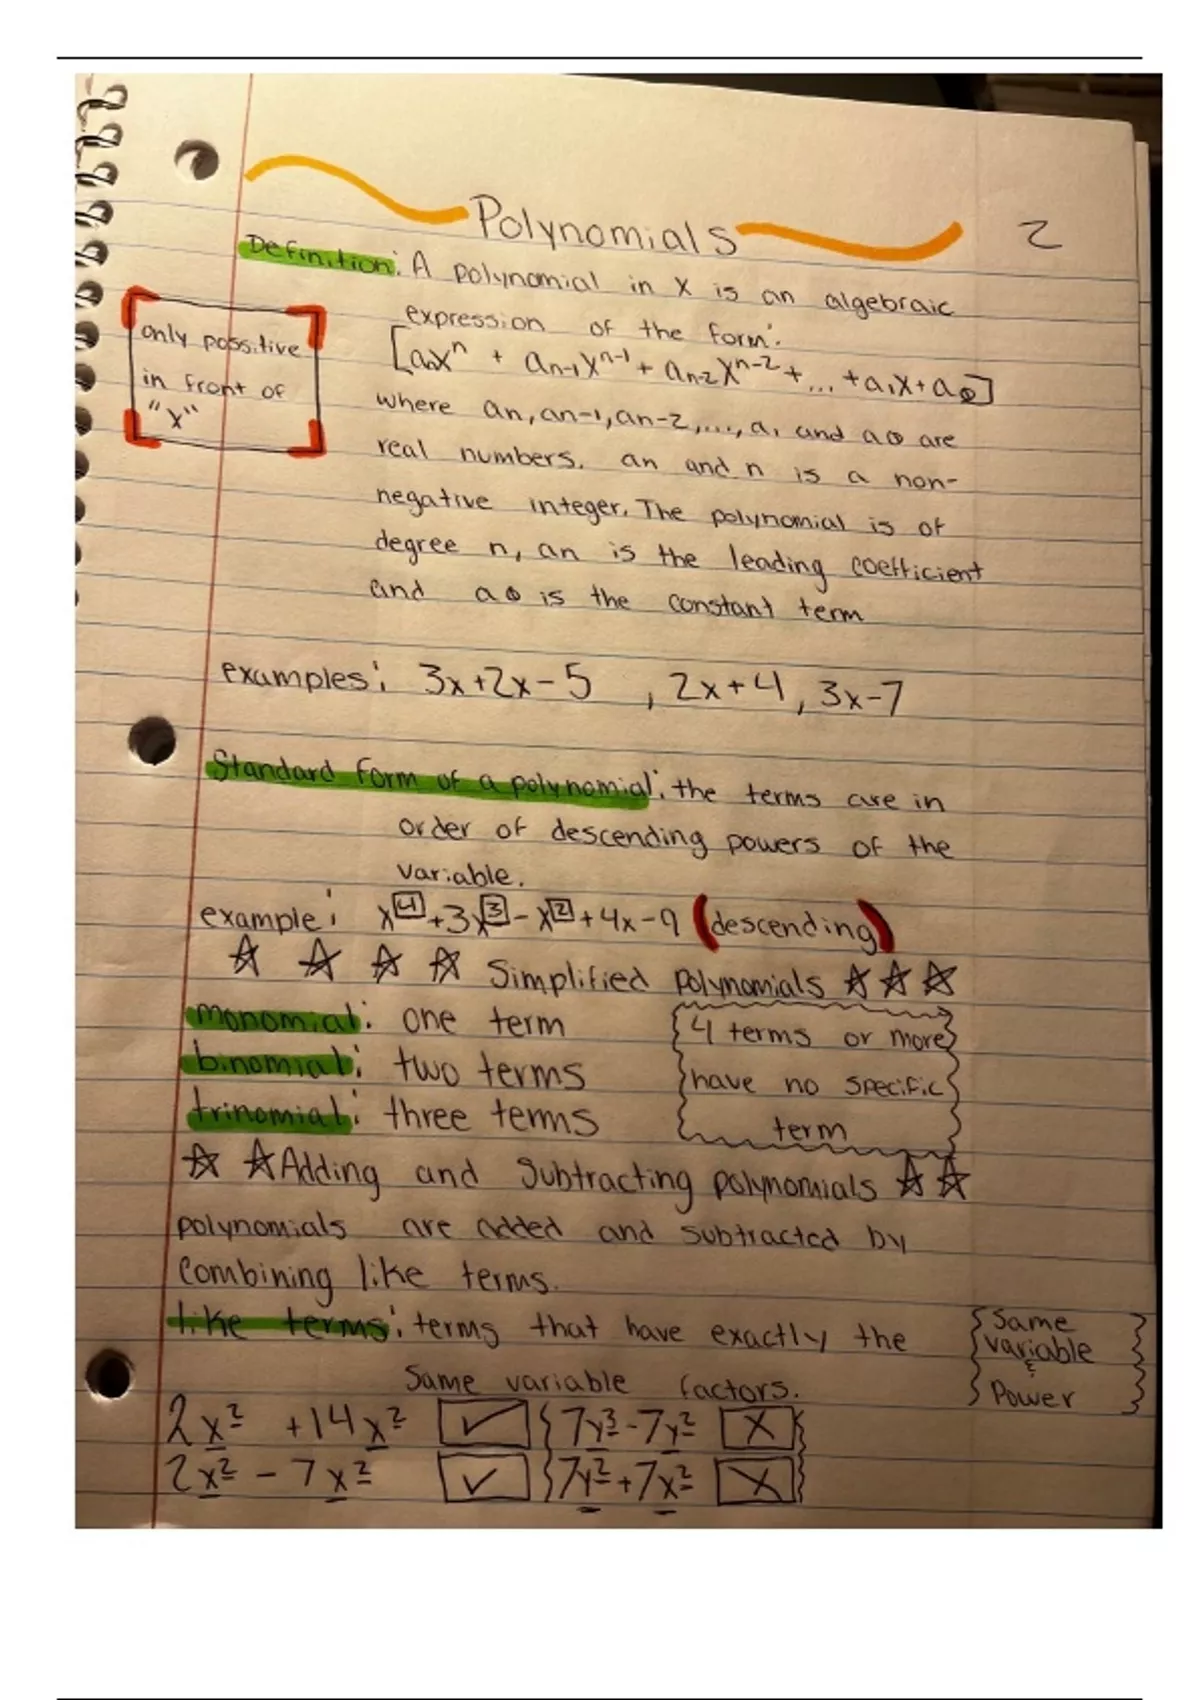 Polynomials 2
Definition: A polynomial in x is an algebraic
expression of the form:
[anxⁿ + an-1xⁿ⁻¹ + an-2xⁿ⁻² + ... + a1x + a0]
only possitive
in front of
"x"
where an, an-1, an-2, ..., a1 and a0 are
real numbers. an and n is a non-
negative integer. The polynomial is of
degree n, an is the leading coefficient
and a0 is the constant term
examples: 3x+2x-5 , 2x+4, 3x-7
Standard form of a polynomial: the terms are in
order of descending powers of the
variable.
example: x⁴+3x³-x²+4x-9 (descending)
☆ ☆ ☆ ☆ Simplified polynomials ☆ ☆ ☆
monomial: one term
binomial: two terms
trinomial: three terms
4 terms or more
have no specific
term
☆ ☆ Adding and Subtracting polynomials ☆ ☆
polynomials are added and subtracted by
Combining like terms.
like terms: terms that have exactly the
same variable factors.
Same
variable
&
Power
2x² +14x² ✓ 7y³-7y² X
2x² - 7x² ✓ 7y²+7x² X